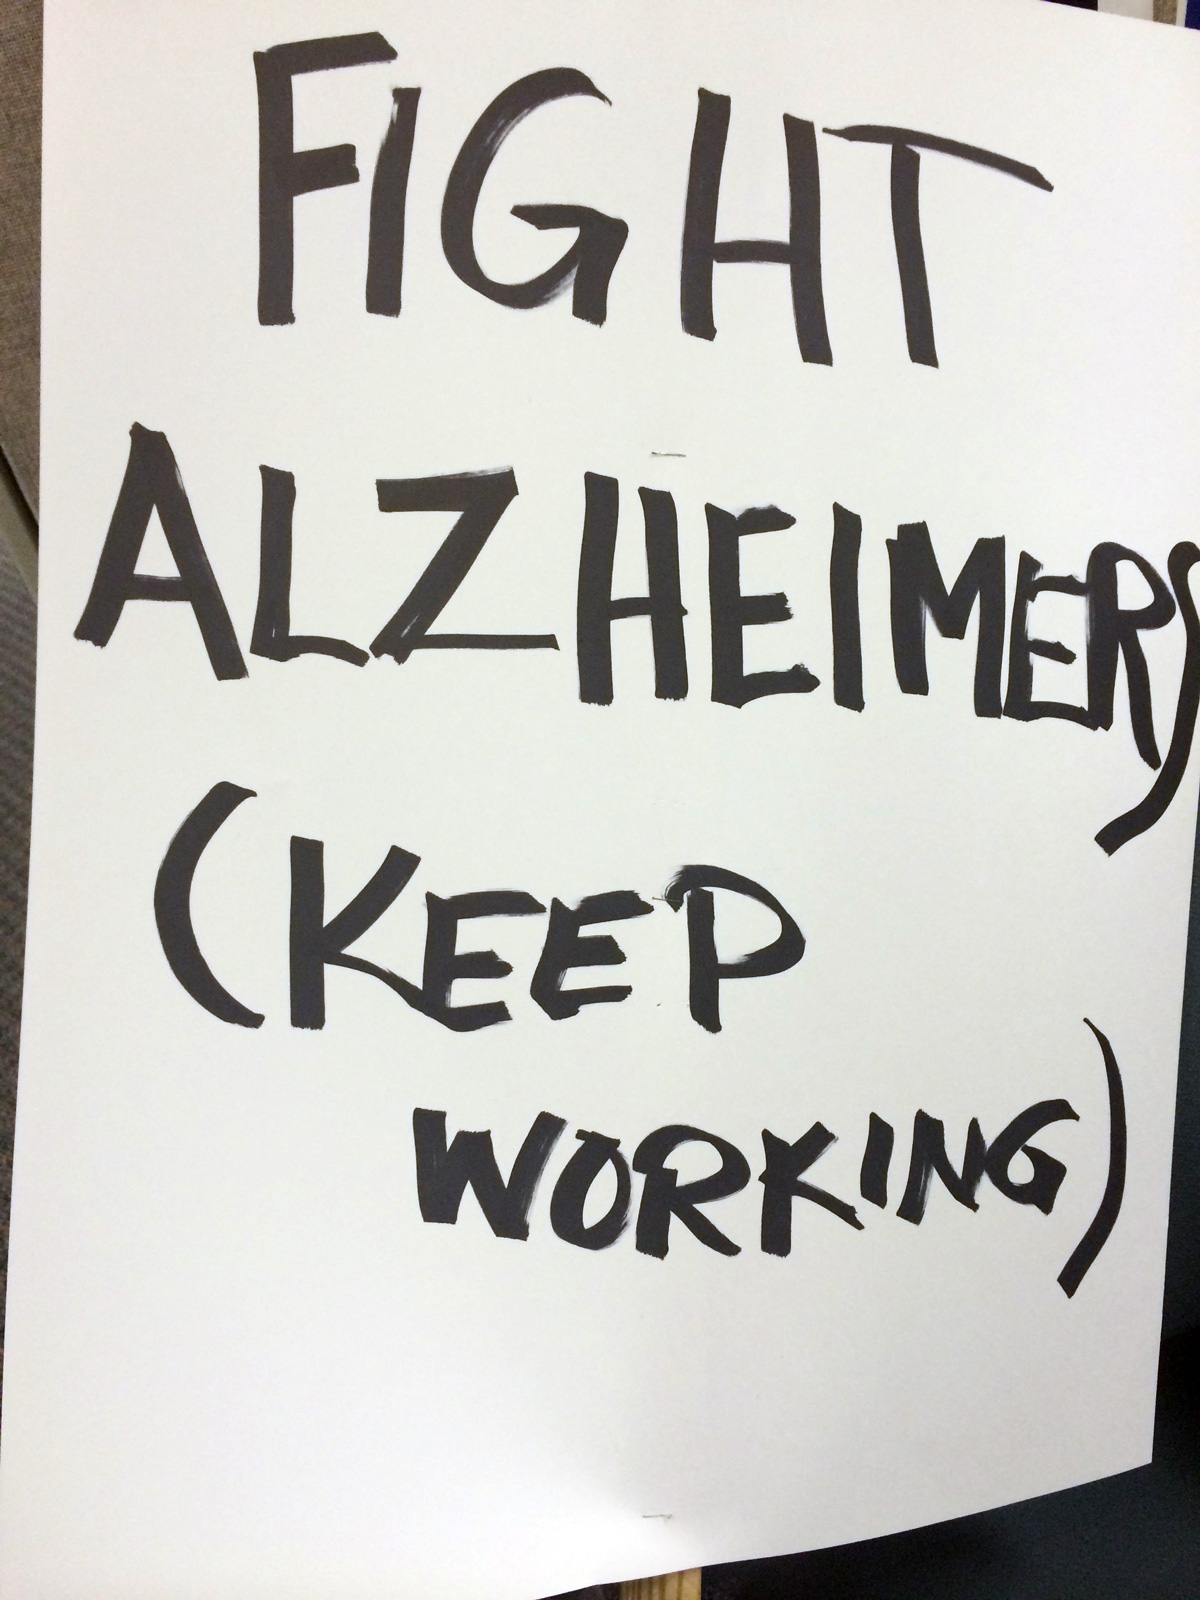 FIGHT
ALZHEIMERS
(KEEP
WORKING)